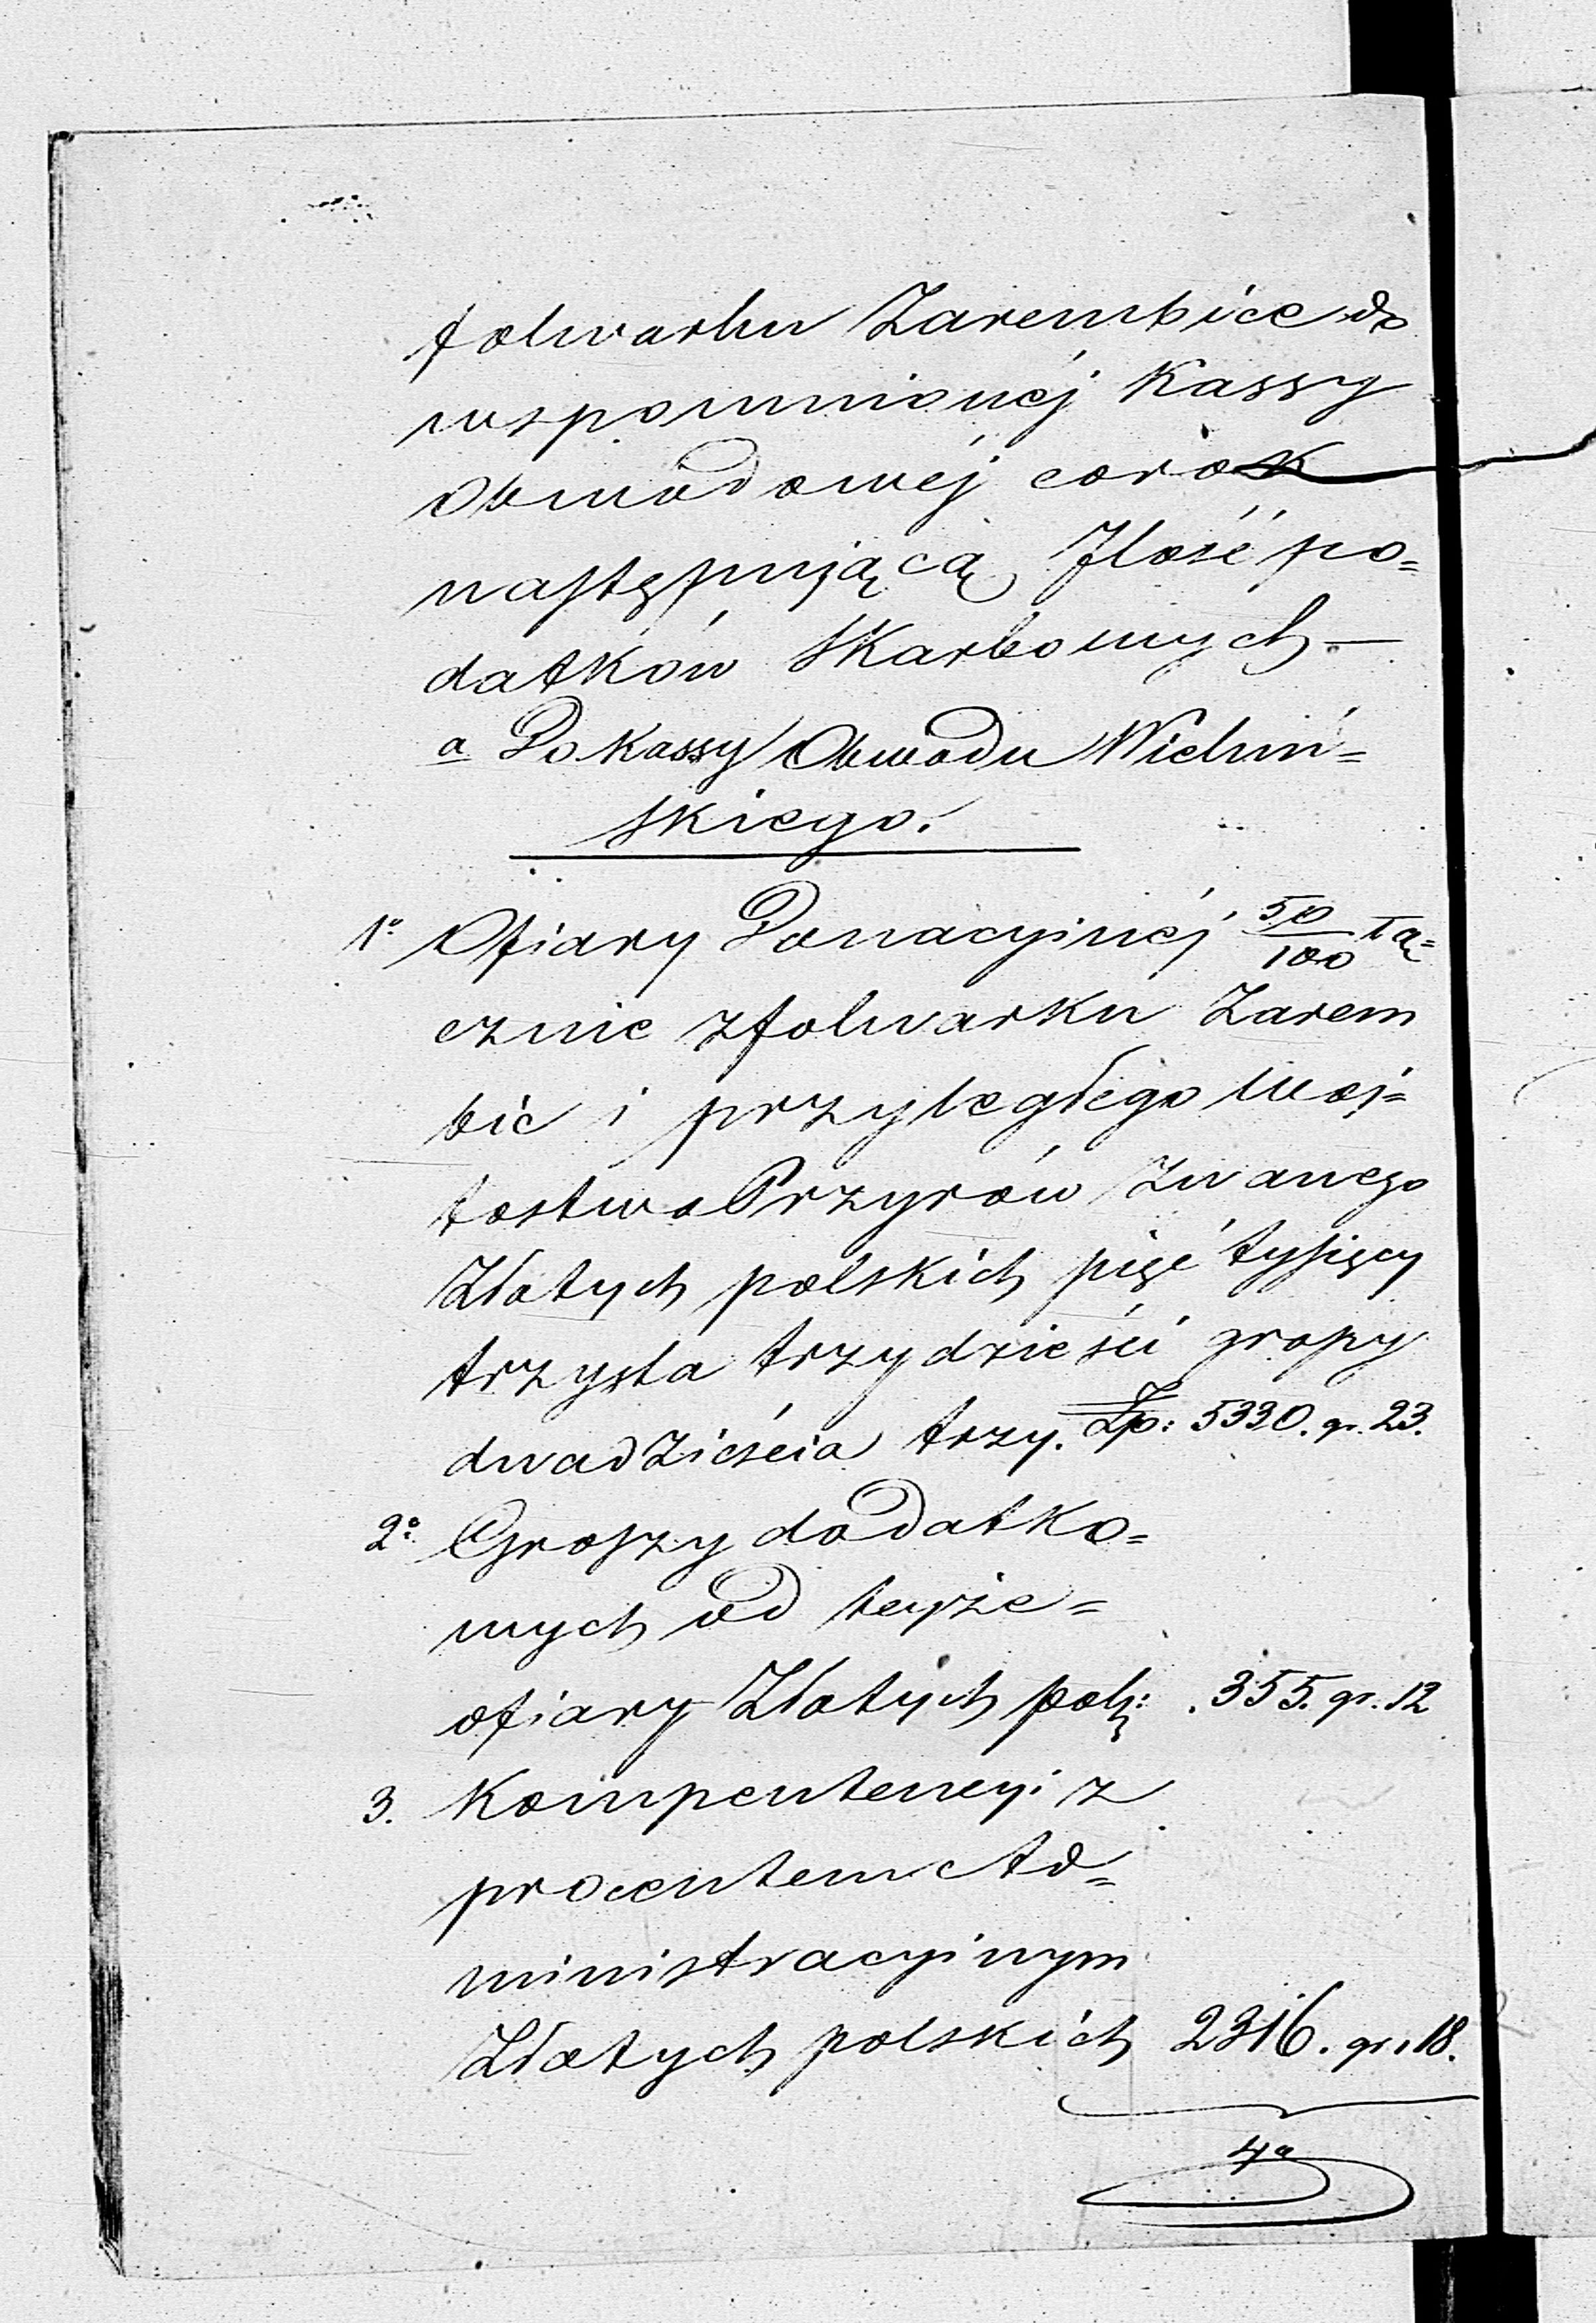 folwarku Zarembice do
wspomnionéj Kassy
Obwodowéj corok
następującą Ilość po=
datków Skarbowych —
a Do Kassy Obwodu Wieluń=
skiego.
1º Ofiary Donacyinéj 50/100 Łą=
cznie z folwarku Zarem
bic i przyległego Woj=
tostwa Przyrów zwanego
Złotych polskich pięć tysięcy
trzysta trzydzieści groszy
dwadzieścia trzy. Złp: 5330. gr. 23.
2º Groszy dodatko=
wych od teyże=
ofiary Złotych pols: . 355. gr. 12
3. Kompentencyi z
procentem Ad=
ministracyinym
Złotych polskich 2316. gr. 18.
4º